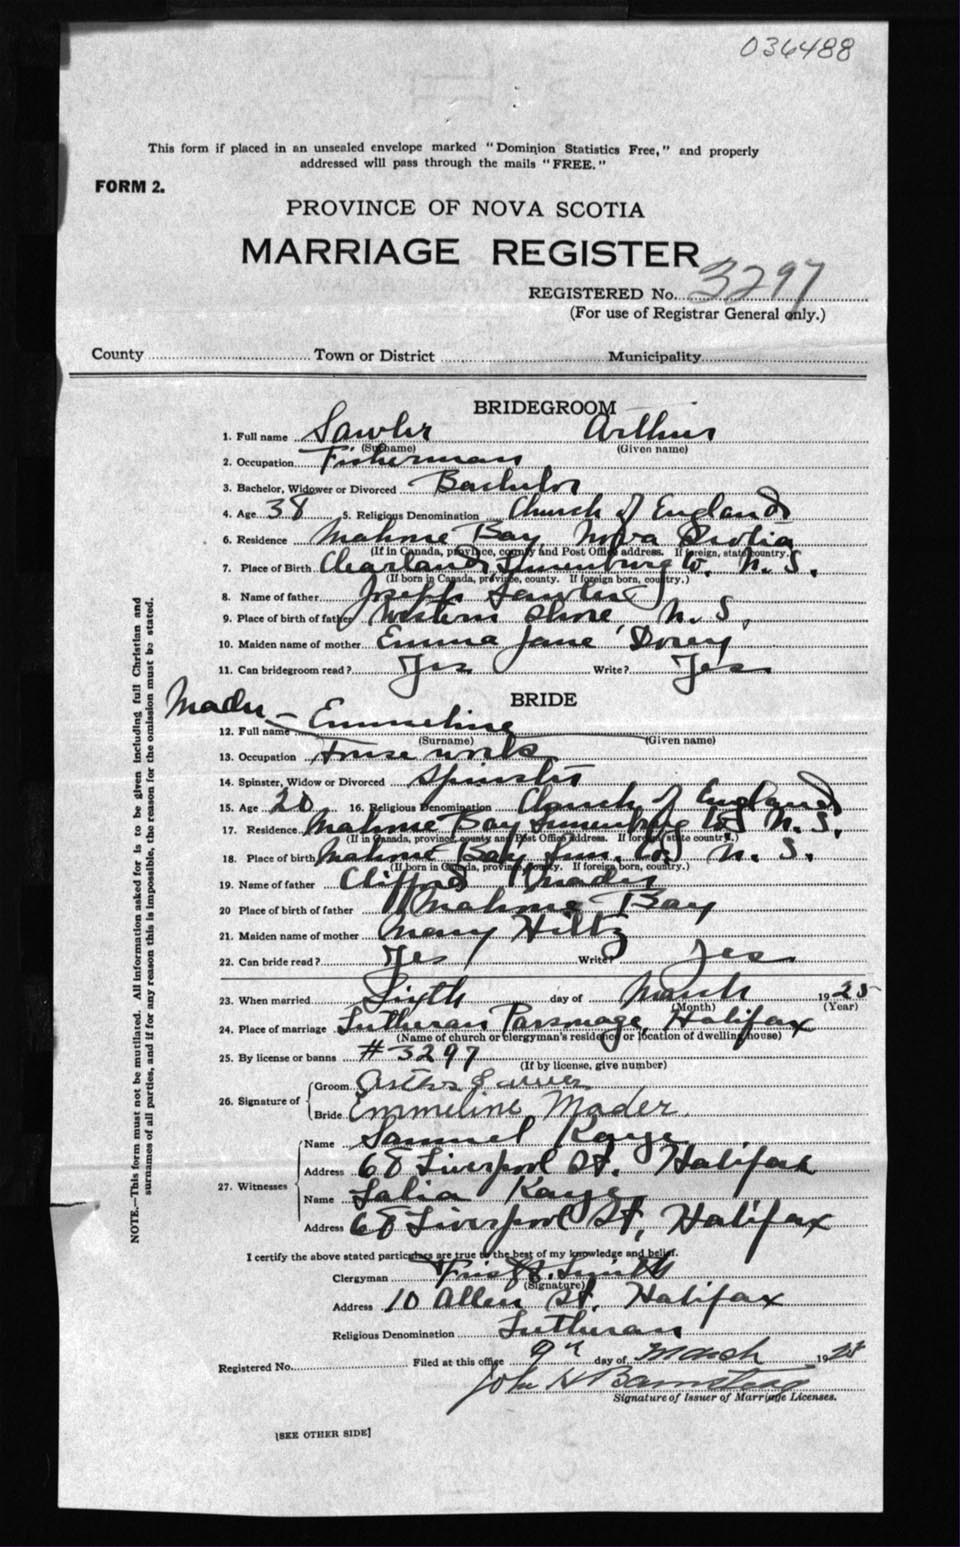 036488
This form if placed in an unsealed envelope marked "Dominion Statistics Free," and properly
addressed will pass through the mails "FREE."
FORM 2.
PROVINCE OF NOVA SCOTIA
MARRIAGE REGISTER
REGISTERED No. 3297
(For use of Registrar General only.)
County Town or District Municipality
BRIDEGROOM
1. Full name Sawler Arthur
(Surname) (Given name)
2. Occupation Fisherman
3. Bachelor, Widower or Divorced Bachelor
4. Age 38 5. Religious Denomination Church of England
6. Residence Mahone Bay Nova Scotia
(If in Canada, province, county and Post Office address. If foreign, state country.)
7. Place of Birth Lunenburg Co. N. S.
(If born in Canada, province, county. If foreign born, country.)
8. Name of father Joseph Sawler
9. Place of birth of father Western Shore N. S.
10. Maiden name of mother Emma Jane Dorey
11. Can bridegroom read? Yes Write? Yes
BRIDE
Mader – Emmeline
12. Full name
(Surname) (Given name)
13. Occupation House work
14. Spinster, Widow or Divorced Spinster
15. Age 20 16. Religious Denomination Church of England
17. Residence Mahone Bay Lunenburg Co. N. S.
(If in Canada, province, county and Post Office Address. If foreign, state country.)
18. Place of birth Mahone Bay Lun. Co. N. S.
(If born in Canada, province, county. If foreign born, country.)
19. Name of father Clifford Mader
20 Place of birth of father Mahone Bay
21. Maiden name of mother Mary Hiltz
22. Can bride read? Yes Write? Yes
23. When married Sixth day of March 1925
(Month) (Year)
24. Place of marriage Lutheran Parsonage, Halifax
(Name of church or clergyman's residence or location of dwelling house)
25. By license or banns #3297
(If by license, give number)
26. Signature of Groom Arthur
Bride Emmeline Mader.
27. Witnesses Name Samuel Kaye
Address 68 Liverpool St. Halifax
Name Kaye
Address 68 Liverpool St, Halifax
I certify the above stated particulars are true to the best of my knowledge and belief.
Clergyman
(Signature)
Address 10 Allen St. Halifax
Religious Denomination Lutheran
Registered No. Filed at this office 9th day of March 1925
John H Barnstead
Signature of Issuer of Marriage Licenses.
[SEE OTHER SIDE]
NOTE.—This form must not be mutilated. All information asked for is to be given including full Christian and
surnames of all parties, and if for any reason this is impossible, the reason for the omission must be stated.